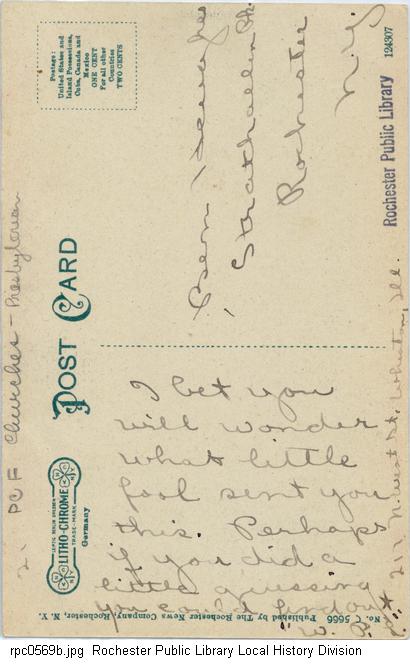 Postage:
United States and
Island Possessions,
Cuba, Canada and
Mexico
ONE CENT
For all other
Countries
TWO CENTS
Strathallan Pk.
Rochester
N.Y.
124307
Rochester Public Library
PCF Churches - Presbyterian
POST CARD
LITHO-CHROME
TRADE-MARK
Germany
I bet you
will wonder
what little
fool sent you
this. Perhaps
if you did a
little guessing
you could find out
W.
West St. Wheaton, Ill.
No. C 5666 Published by The Rochester News Company, Rochester, N. Y.
rpc0569b.jpg Rochester Public Library Local History Division